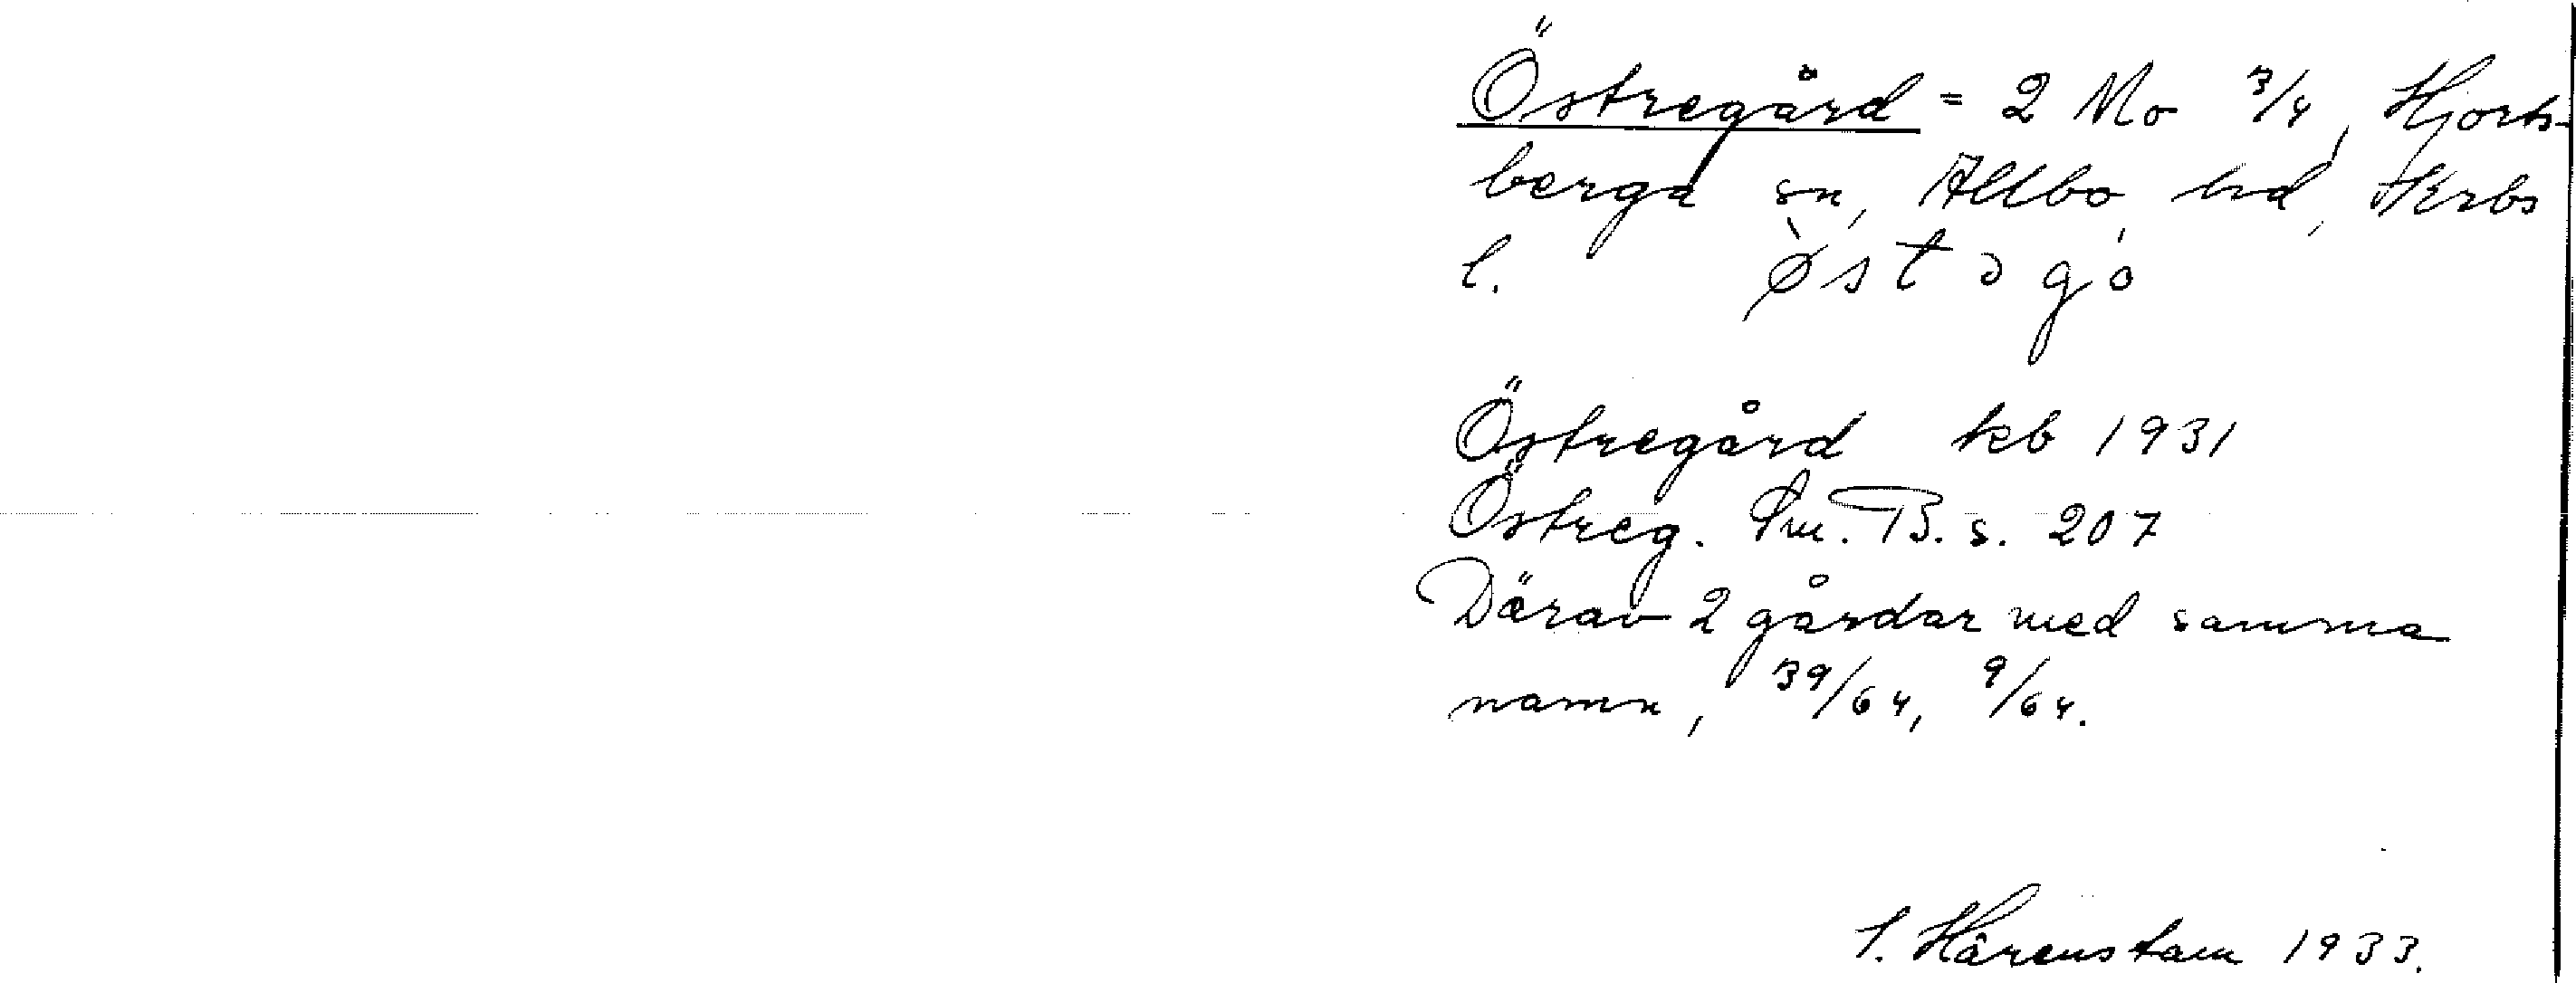 Östregård = 2 Mo 3/4, Hjorts-
berga sn, Allbo hd, Krbs
l. ø̀stəgó
Östregård kb 1931
Östreg. Sm. B. s. 207
Därav 2 gårdar med samma
namn, 39/64, 9/64.
S. Hårenstam 1933.